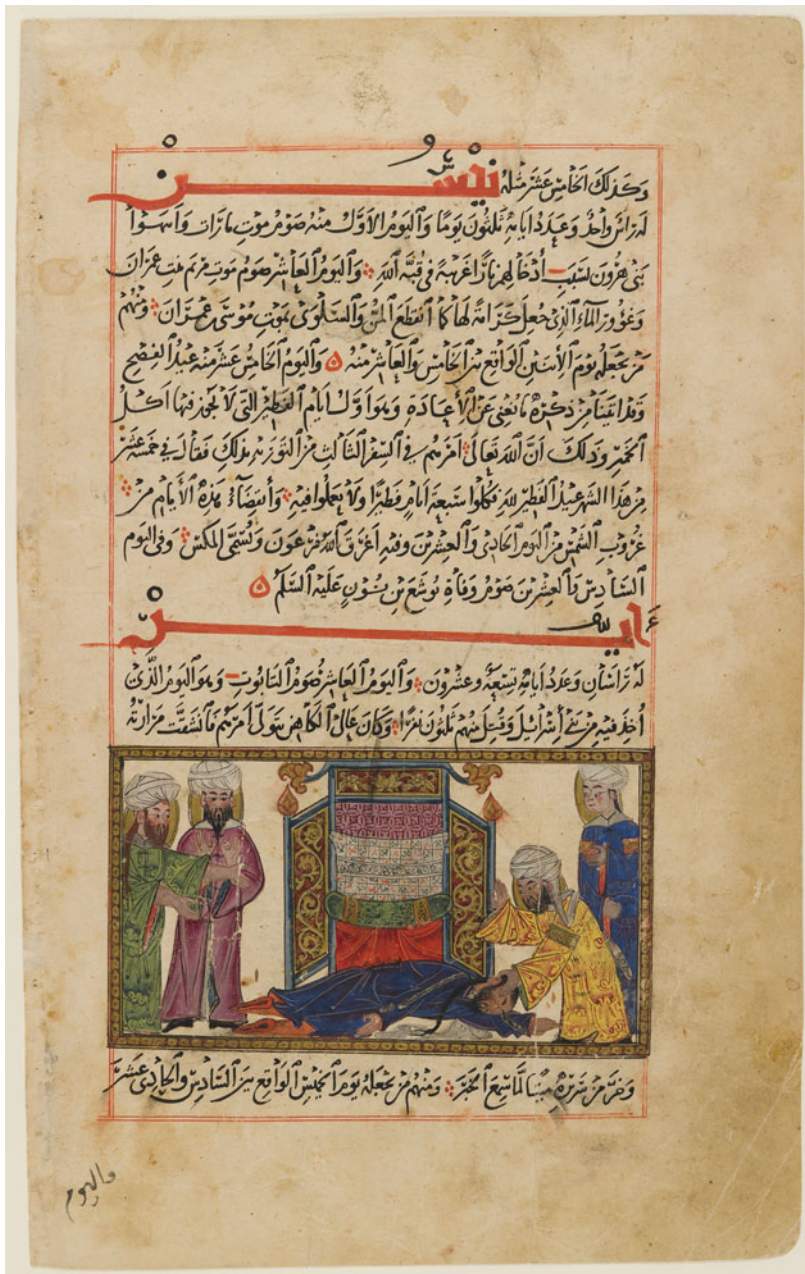 وكذلك الخامس عشر مثله نيسن
له راس واحد وعدد ايامه ثلثون يوما واليوم الاول منه صوم موت ناداب وابيهوا
بنى هرون بسبب أدخالهم نارا غريبة فى قبة الله واليوم العاشر صوم موت مريم بنت عمران
وغؤور المآء الذى جعل كرامة لها كما انقطع المن والسلوى بموت موسى بن عمران ومنهم
من يجعله يوم الأثنين الواقع بين الخامس والعاشر منه واليوم الخامس عشر منه عيد الفصح
وقد اتينا من ذكره ما يغنى عن الأعادة وهو اول ايام الفطير التى لا يجوز فيها اكل
الخمير وذلك ان الله تعالى امرهم في السفر الثالث من التورىه بذلك فقال في خمسة عشر
من هذا الشهر عيد الفطير لله فكلوا سبعة ايام فطيرا ولا يعملوا فيه وأنقضآء هذه الأيام من
غروب الشمس من اليوم الحادى والعشرين وفيه اغرق الله فرعون ويسمى المكس وفى اليوم
السادس والعشرين صوم وفاة يوشع بن نون عليه السلم
اير
له راسان وعدد ايامه تسعة وعشرون واليوم العاشر صوم التابوت وهو اليوم الذى
أخذ فيه من بنى أسرائيل وقتل منهم ثلثون نفرا وكان عالى الكاهن يتولى امرهم فأنشقت مرارته
وخر من سريره ميتا لما سمع الخبر ومنهم من يجعله يوم الخميس الواقع بين السادس والحادى عشر
واليوم